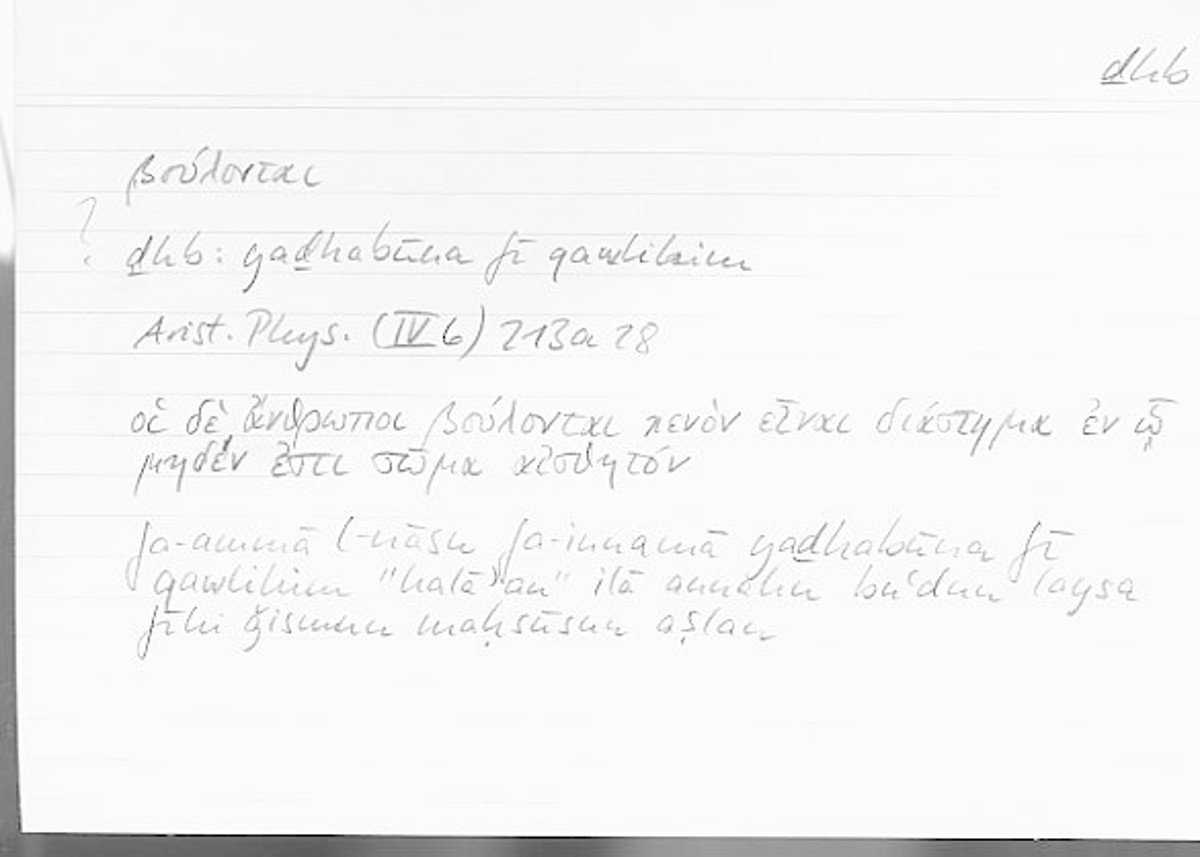 ḏhb
βούλονται
?
ḏhb: yaḏhabūna fī qawlihim
Arist. Phys. (IV 6) 213a 28
οἱ δὲ ἄνθρωποι βούλονται κενὸν εἶναι διάστημα ἐν ᾧ
μηδέν ἐστι σῶμα αἰσθητόν
fa-ammā l-nāsu fa-innamā yaḏhabūna fī
qawlihim "ḫalāʾan" ilā annahu buʿdun laysa
fīhi ǧismun maḥsūsun aṣlan